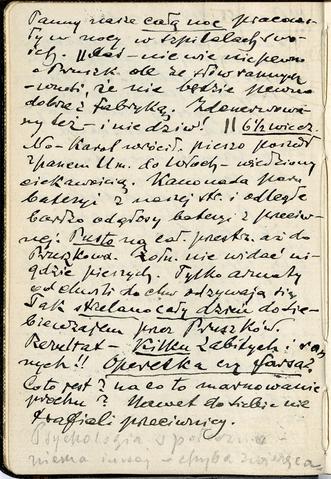 Panny nasze całą noc pracowa-
ły w nocy w szpitalach swo-
ich. || nie wie nic pewno
o Pruszk. ale ze słów rannych
wnosi, że nie będzie pewno
dobrze z fabryką. Zdenerwowa-
ny też - i nie dziw! || 6½ wiecz.
No - Karol wrócił, pieszo poszedł
z panem Um. do Włoch - wiedziony
ciekawością. Kanonada paru
bateryj z naszej str. i odległe
bardzo odgłosy bateryj z przeciw-
nej. Pusto na cał. przestrz. aż do
Pruszkowa. Żołn. nie widać ni-
gdzie pieszych. Tylko armaty
od chwili do chw. odzywają się
Tak strzelano cały dzień do sie-
bie wzajem przez Pruszków.
Rezultat - Kilku zabitych i ran-
nych!! Operetka czy farsa?
Co to jest? na co to marnowanie
prochu? Nawet do siebie nie
trafiali przeciwnicy.
Psychologia
niema innej - chyba